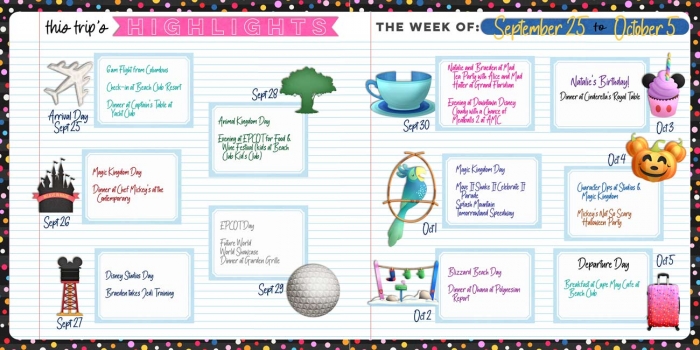 this trip's HIGHLIGHTS
6am Flight from Columbus
Check-in at Beach Club Resort
Dinner at Captain's Table at
Yacht Club
Arrival Day
Sept 25
Magic Kingdom Day
Dinner at Chef Mickey's at the
Contemporary
Sept 26
Disney Studios Day
Braeden takes Jedi Training
Sept 27
Sept 28
Animal Kingdom Day
Evening at EPCOT for Food &
Wine Festival (kids at Beach
Club Kid's Club)
EPCOT Day
Future World
World Showcase
Dinner at Garden Grille
Sept 29
THE WEEK OF: September 25 to October 5
Natalie and Braeden at Mad
Tea Party with Alice and Mad
Hatter at Grand Floridian
Evening at Downtown Disney
Cloudy with a Chance of
Meatballs 2 at AMC
Sept 30
Magic Kingdom Day
Move It Shake It Celebrate It
Parade
Splash Mountain
Tomorrowland Speedway
Oct 1
Blizzard Beach Day
Dinner at Ohana at Polynesian
Resort
Oct 2
Natalie's Birthday!
Dinner at Cinderella's Royal Table
Oct 3
Oct 4
Character Ops at Studios &
Magic Kingdom
Mickey's Not So Scary
Halloween Party
Departure Day
Breakfast at Cape May Cafe at
Beach Club
Oct 5